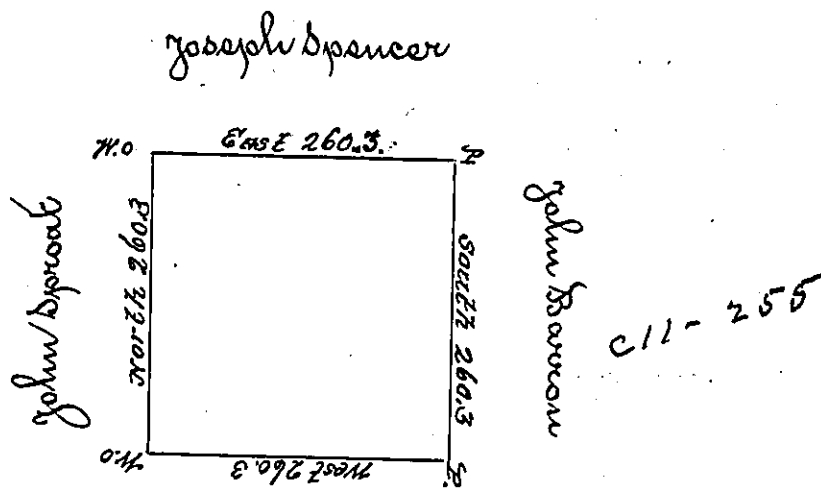 Joseph Spencer
W.O
East 260.3.
P
John Sproat
North 260.3
South 260.3
John Barron
C11-255
W.O
West 260.3